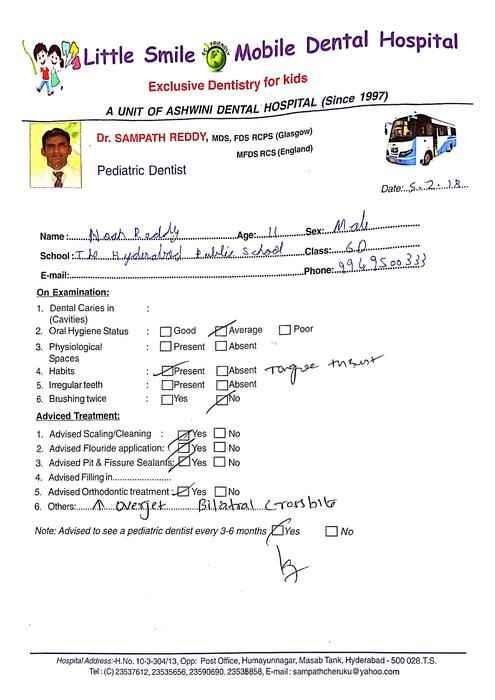 Little Smile Mobile Dental Hospital
ECO FRIENDLY
Exclusive Dentistry for kids
A UNIT OF ASHWINI DENTAL HOSPITAL (Since 1997)
Dr. SAMPATH REDDY, MDS, FDS RCPS (Glasgow)
MFDS RCS (England)
Pediatric Dentist
Date: 5.2.18
Name: Noah Reddy Age: 11 Sex: Male
School: The Hyderabad Public School Class: 6D
E-mail: Phone: 9969500333
On Examination:
1. Dental Caries in (Cavities) :
2. Oral Hygiene Status : Good Average Poor
3. Physiological Spaces : Present Absent
4. Habits : Present Absent Tongue thrust
5. Irregular teeth : Present Absent
6. Brushing twice : Yes No
Adviced Treatment:
1. Advised Scaling/Cleaning : Yes No
2. Advised Flouride application: Yes No
3. Advised Pit & Fissure Sealants: Yes No
4. Advised Filling in
5. Advised Orthodontic treatment: Yes No
6. Others: ↑ overjet Bilatral Crossbite
Note: Advised to see a pediatric dentist every 3-6 months Yes No
Hospital Address:-H.No. 10-3-304/13, Opp: Post Office, Humayunnagar, Masab Tank, Hyderabad - 500 028.T.S.
Tel: (C) 23537612, 23535656, 23590690, 23535858, E-mail: sampathcheruku@yahoo.com